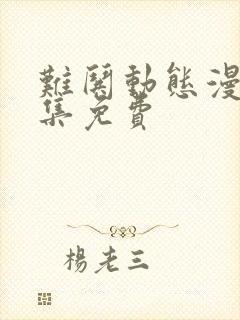 難鬩動態漫
集免費
楊老三